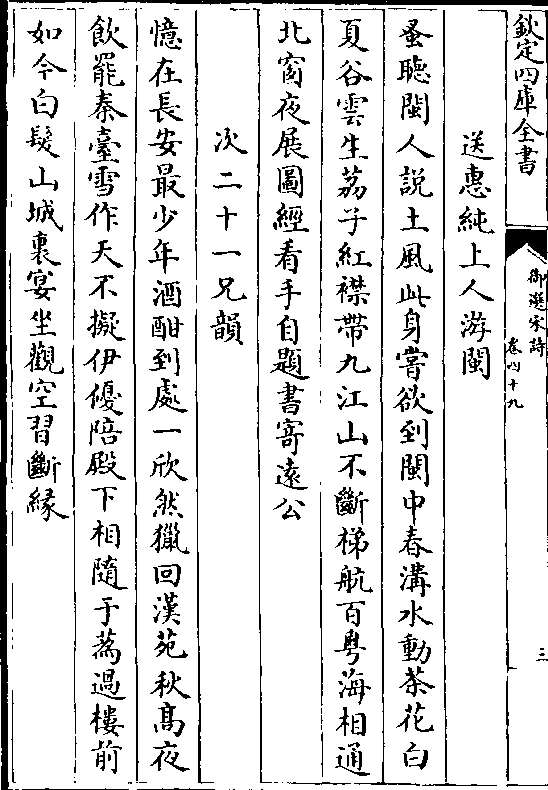 欽定四庫全書
御選宋詩
卷四十九
三
送惠純上人游閩
蚤聽閩人說土風此身嘗欲到閩中春溝水動茶花白
夏谷雲生荔子紅襟帶九江山不斷梯航百粤海相通
北窗夜展圖經看手自題書寄遠公
次二十一兄韻
憶在長安最少年酒酣到處一欣然獵回漢苑秋髙夜
飲罷秦臺雪作天不擬伊優陪殿下相隨于蔿過樓前
如今白髮山城裏宴坐觀空習斷緣